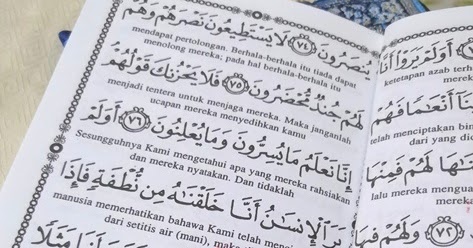 يُنصَرُونَ ﴿٧٤﴾ لَا يَسْتَطِيعُونَ نَصْرَهُمْ وَهُمْ
mendapat pertolongan. Berhala-berhala itu tiada dapat
menolong mereka; pada hal berhala-berhala itu
لَهُمْ جُندٌ مُّحْضَرُونَ ﴿٧٥﴾ فَلَا يَحْزُنكَ قَوْلُهُمْ
menjadi tentera untuk menjaga mereka. Maka janganlah
ucapan mereka menyedihkan kamu
إِنَّا نَعْلَمُ مَا يُسِرُّونَ وَمَا يُعْلِنُونَ ﴿٧٦﴾ أَوَلَمْ
Sesungguhnya Kami mengetahui apa yang mereka rahsiakan
dan mereka nyatakan. Dan tidaklah
يَرَ الْإِنسَٰنُ أَنَّا خَلَقْنَٰهُ مِن نُّطْفَةٍ فَإِذَا
manusia memerhatikan bahawa Kami telah
dari setitis air (mani),
مَثَلًا
أَوَلَمْ يَرَوْا أَنَّا
ketetapan azab
أَنْعَٰمًا فَهُمْ
telah menciptakan
dari yang
لَهُمْ فَمِنْهَا
lalu mereka
﴿٧٢﴾ وَلَهُمْ